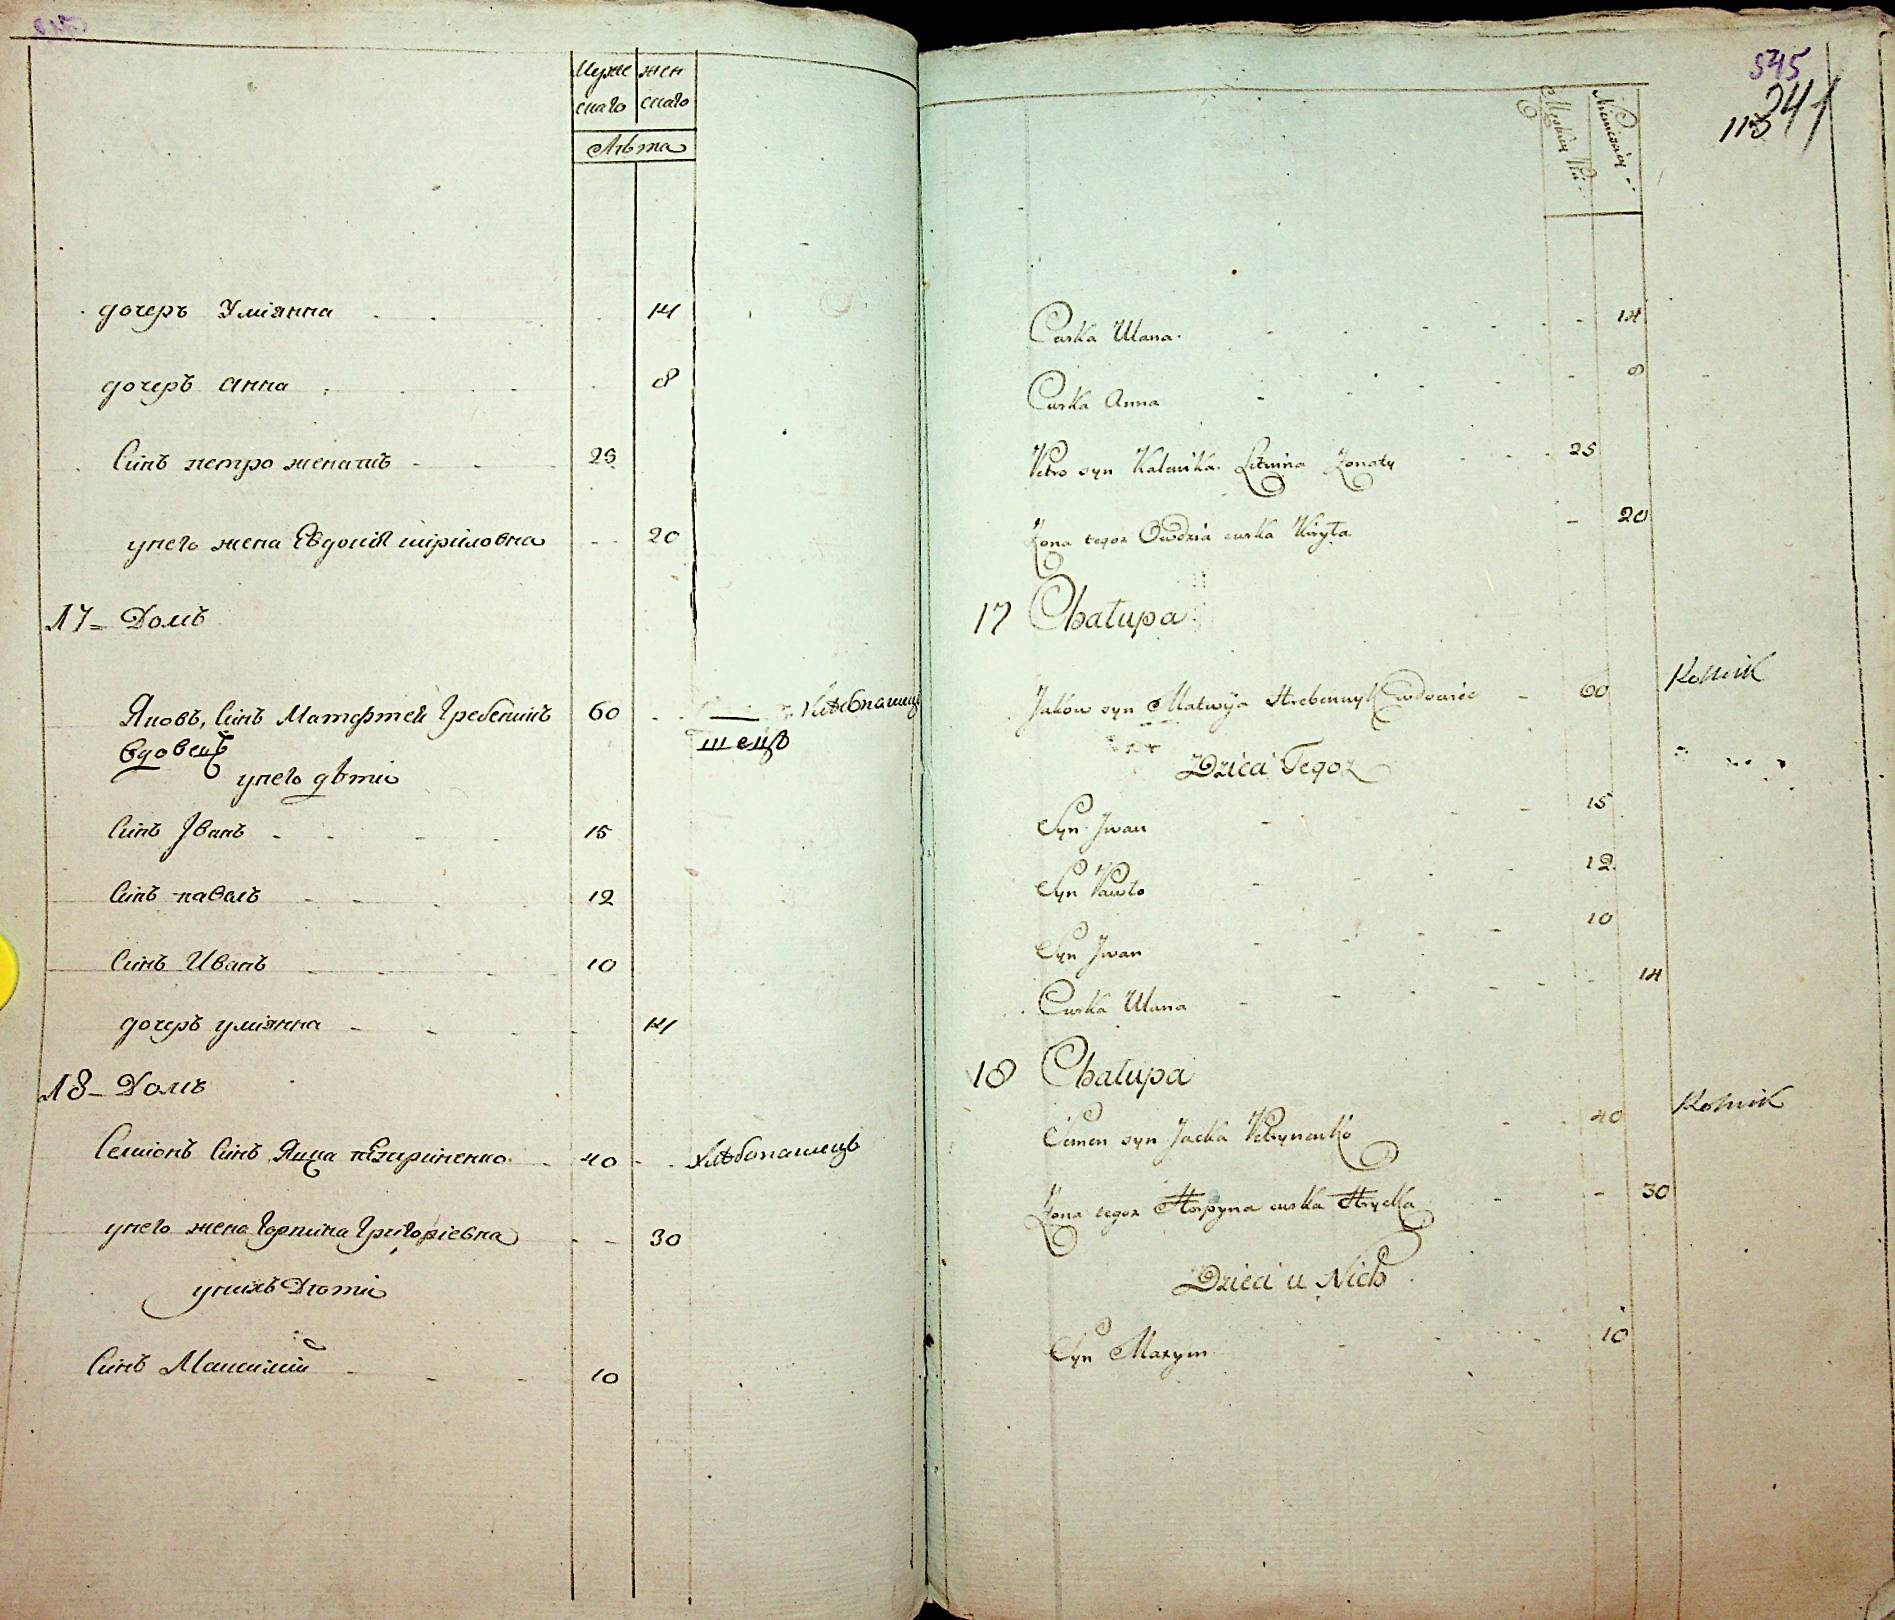 Муже жен
скаго скаго
Лѣта
дочеръ Улiянна 14
дочеръ Анна 8
Синъ петро женатъ 25
унего жена Евдокiя кiриловна 20
17 Домъ
Яковъ, Синъ Матфтей Гребеникъ 60 Хлебопашец
вдовецъ
унего дѣти
Синъ Іванъ 15
Синъ павелъ 12
Синъ Иванъ 10
дочеръ улiянна 14
18 Домъ
Семионъ Синъ Яцка 40 хлѣбопашецъ
унего жена Горпина Григорiевна 30
унихъ Дѣти
Синъ Максимъ 10
545
241
113
Męskiey
Niewieściey
Curka Ulana 14
Curka Anna 8
Petro syn Litwina Żonaty 25
Żona tegoż Owdzia curka Kiryła 20
17 Chałupa
Jakow syn Matwija Hrebennyk wdowiec 60 Rolnik
Dzieci Tegoż
Syn Jwan 15
Syn Pawło 12
Syn Jwan 10
Curka Ulana 14
18 Chałupa
Semen syn Jacka Petrynenko 40 Rolnik
Żona tegoż Horpyna curka Hryćka 30
Dzieci u Nich
Syn Maxym 10